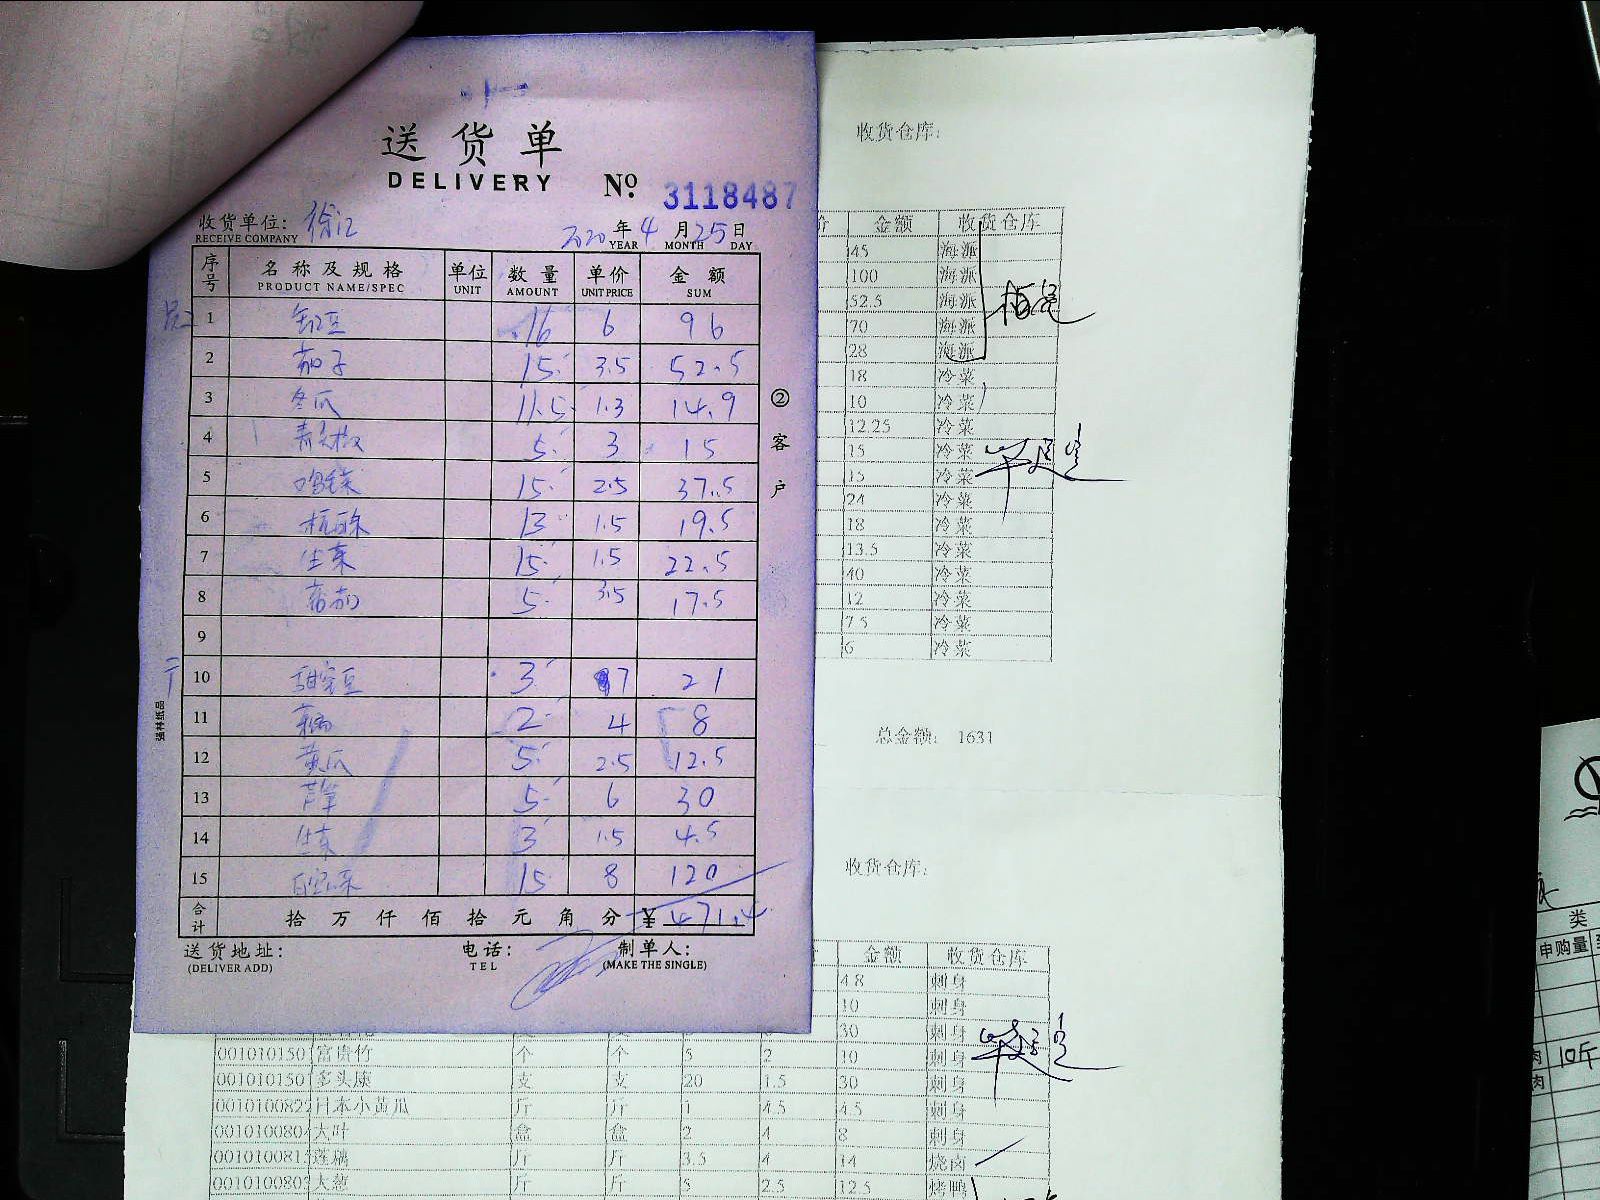 送货单
DELIVERY
№ 3118487
收货单位: 徐汇
RECEIVE COMPANY
2020年4月25日
YEAR MONTH DAY
序号 名称及规格 单位 数量 单价 金额
PRODUCT NAME/SPEC UNIT AMOUNT UNIT PRICE SUM
1 缸豆 16 6 96
2 茄子 15 3.5 52.5
3 冬瓜 11.5 1.3 14.9
4 青尖椒 5 3 15
5 15 2.5 37.5
6 13 1.5 19.5
7 生菜 15 1.5 22.5
8 番茄 5 3.5 17.5
9
10 3 7 21
11 2 4 8
12 黄瓜 5 2.5 12.5
13 芦笋 5 6 30
14 生菜 3 1.5 4.5
15 15 8 120
合计 拾万仟佰拾元角分 ¥ 471.4
送货地址: 电话: 制单人:
(DELIVER ADD) TEL (MAKE THE SINGLE)
②客户
强林纸品
收货仓库:
金额 收货仓库
45 海派
100 海派
52.5 海派
70 海派
28 海派
18 冷菜
10 冷菜
12.25 冷菜
15 冷菜
15 冷菜
24 冷菜
18 冷菜
13.5 冷菜
40 冷菜
12 冷菜
7.5 冷菜
6 冷菜
总金额: 1631
收货仓库:
金额 收货仓库
4.8 刺身
10 刺身
30 刺身
001010150 富贵竹 个 个 5 2 10 刺身
001010150 多头康 支 支 20 1.5 30 刺身
001010082 日本小黄瓜 斤 斤 1 4.5 4.5 刺身
001010080 大叶 盒 盒 2 4 8 刺身
001010081 莲藕 斤 斤 3.5 4 14 烧卤
001010080 大葱 斤 斤 5 2.5 12.5 烤鸭
类
申购量
10斤
肉